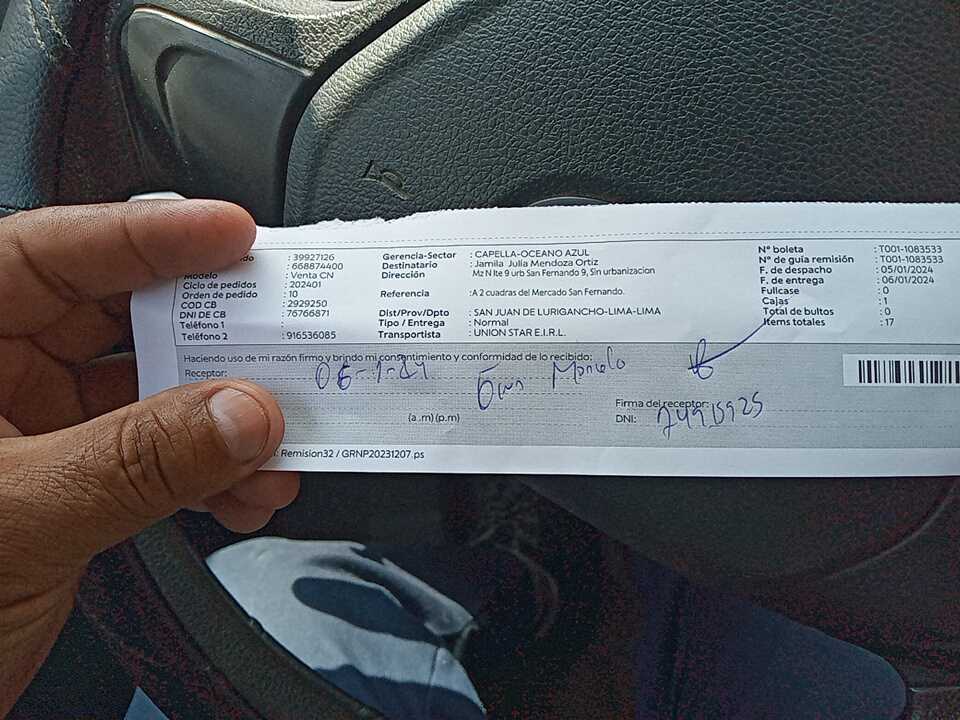 : 39927126
: 668874400
Modelo : Venta CN
Ciclo de pedidos : 202401
Orden de pedido : 10
COD CB : 2929250
DNI DE CB : 76766871
Teléfono 1 :
Teléfono 2 : 916536085
Gerencia-Sector : CAPELLA-OCEANO AZUL
Destinatario : Jamila Julia Mendoza Ortiz
Dirección Mz N lte 9 urb San Fernando 9, Sin urbanizacion
Referencia :A 2 cuadras del Mercado San Fernando.
Dist/Prov/Dpto : SAN JUAN DE LURIGANCHO-LIMA-LIMA
Tipo / Entrega : Normal
Transportista : UNION STAR E.I.R.L.
N° boleta : T001-1083533
N° de guía remisión : T001-1083533
F. de despacho : 05/01/2024
F. de entrega : 06/01/2024
Fullcase : 0
Cajas : 1
Total de bultos : 0
Items totales : 17
Haciendo uso de mi razón firmo y brindo mi consentimiento y conformidad de lo recibido:
Receptor: 06-1-24
(a .m) (p.m)
Firma del receptor:
DNI: 74915925
Remision32 / GRNP20231207.ps